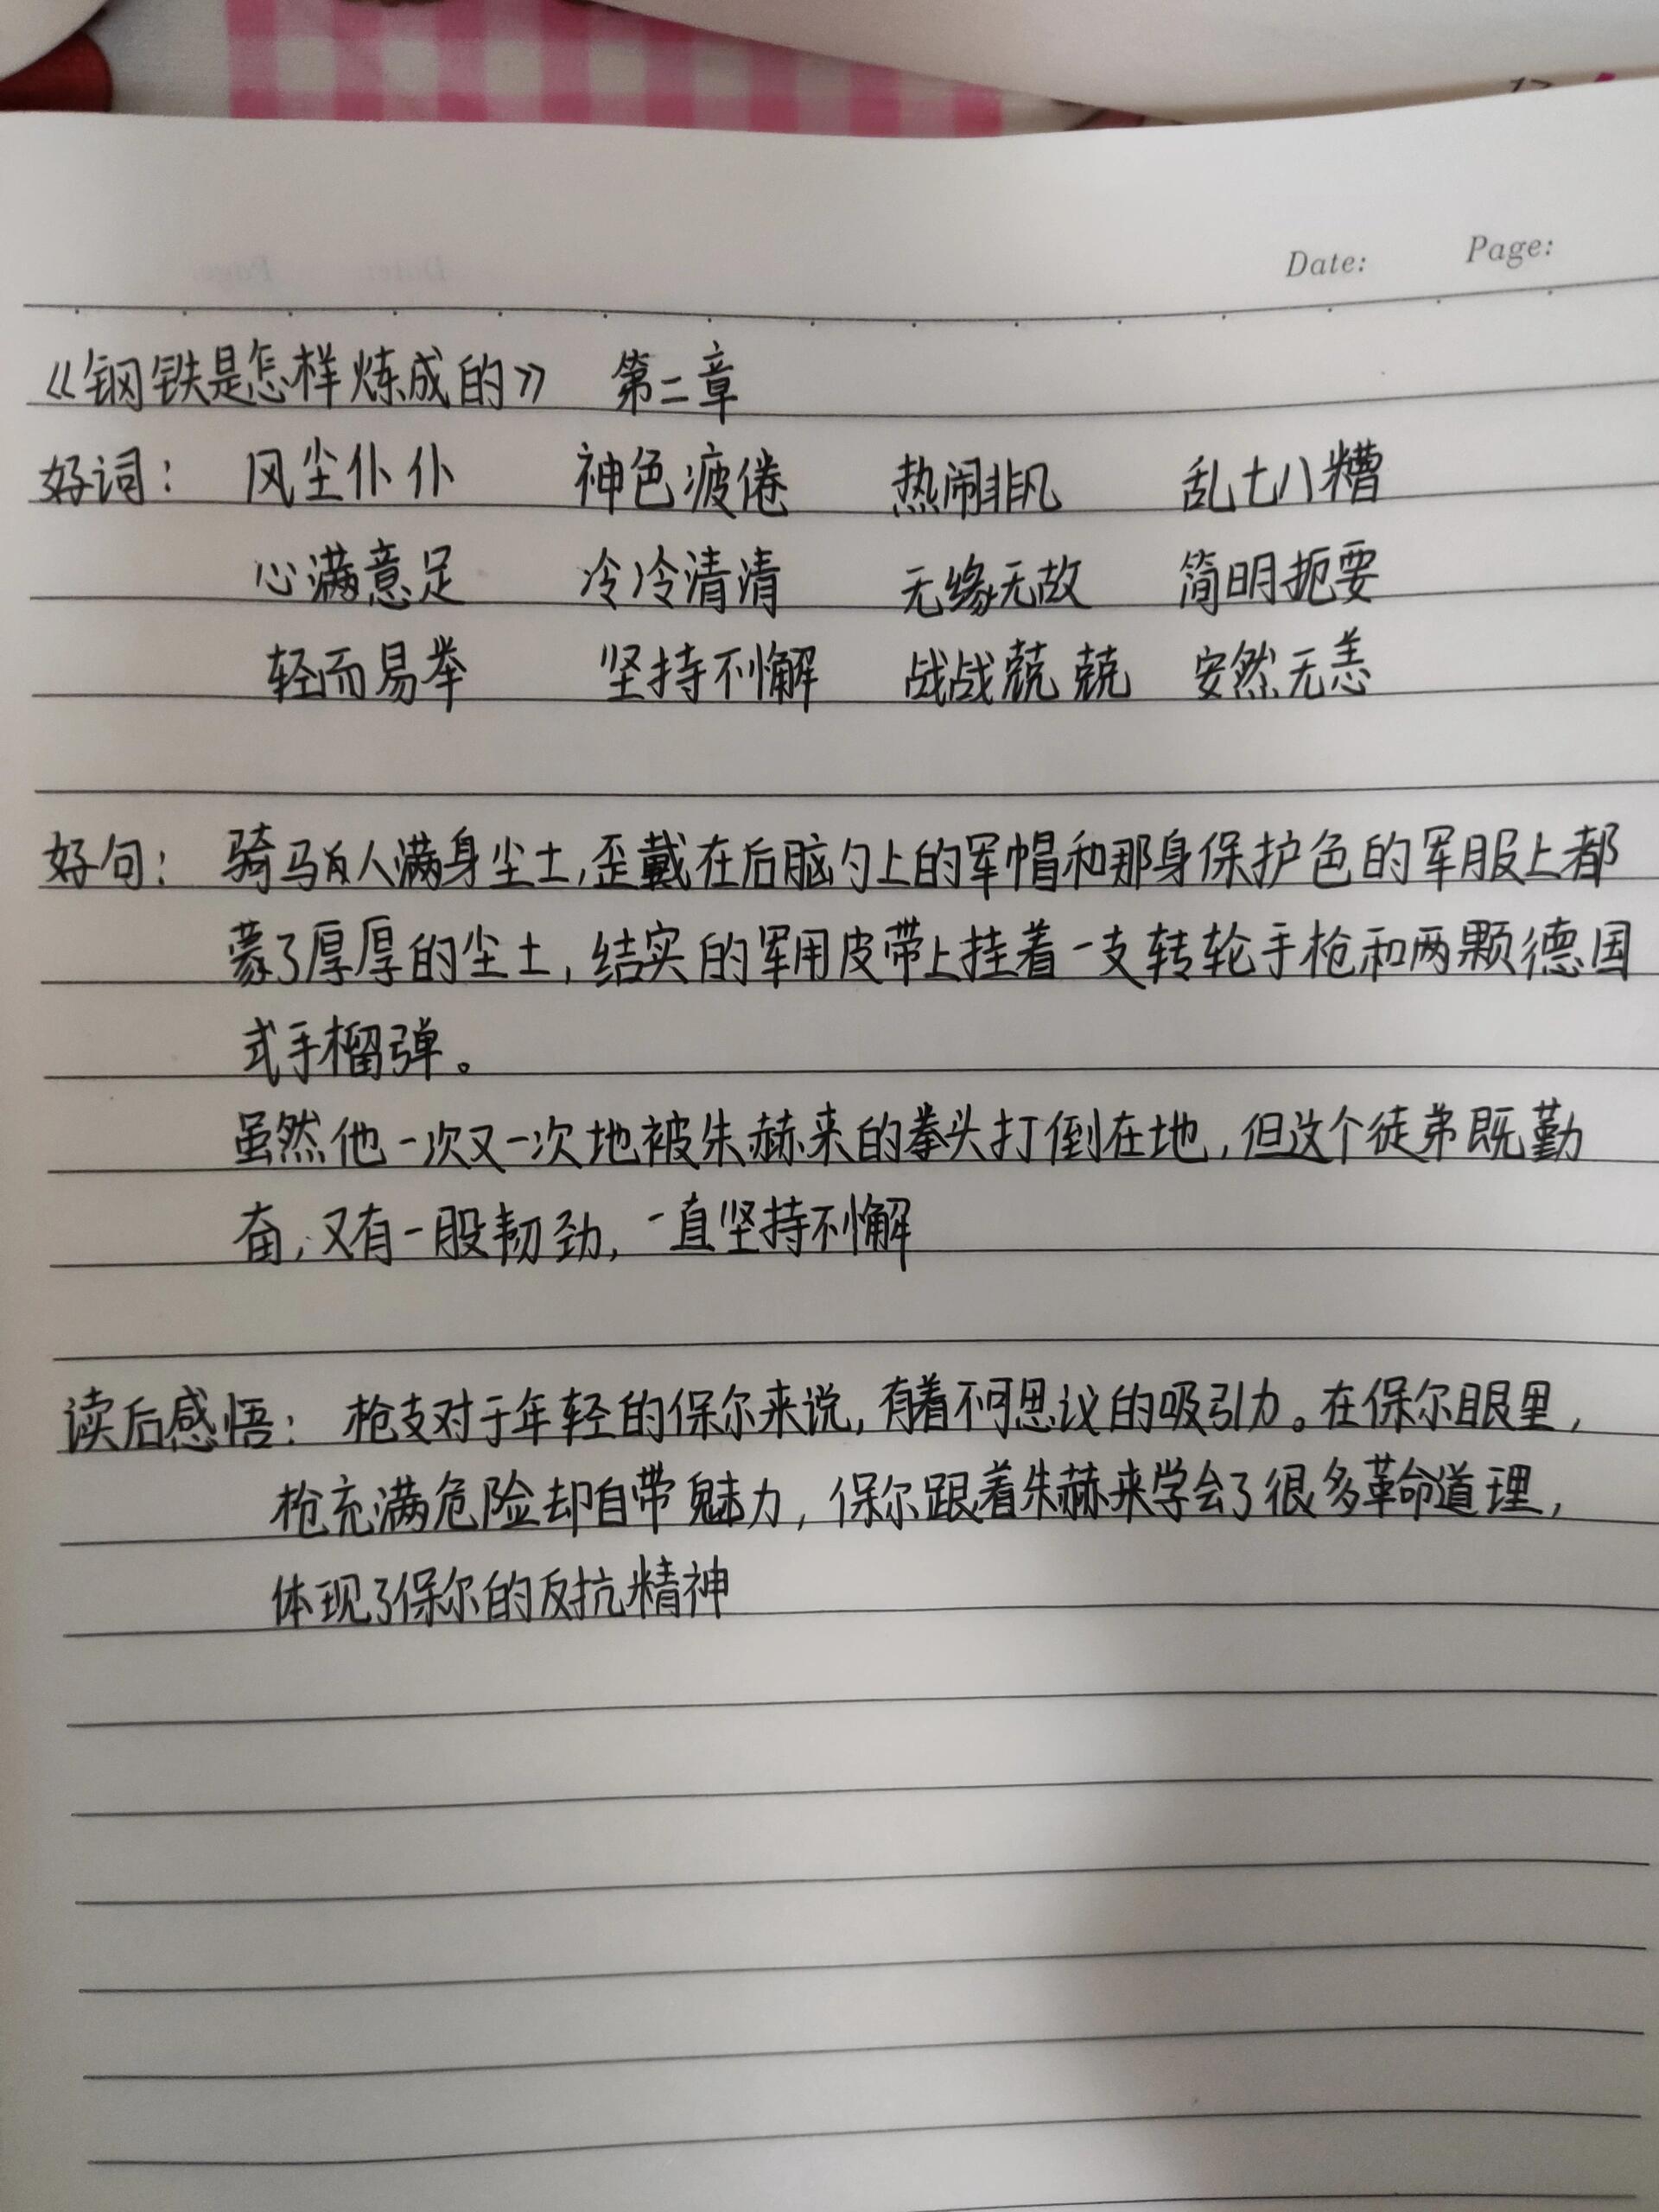 Date: Page:
《钢铁是怎样炼成的》 第二章
好词： 风尘仆仆 神色疲倦 热闹非凡 乱七八糟
心满意足 冷冷清清 无缘无故 简明扼要
轻而易举 坚持不懈 战战兢兢 安然无恙
好句： 骑马的人满身尘土，歪戴在后脑勺上的军帽和那身保护色的军服上都
蒙了厚厚的尘土，结实的军用皮带上挂着一支转轮手枪和两颗德国
式手榴弹。
虽然他一次又一次地被朱赫来的拳头打倒在地，但这个徒弟既勤
奋，又有一股韧劲，一直坚持不懈
读后感悟： 枪支对于年轻的保尔来说，有着不可思议的吸引力。在保尔眼里，
枪充满危险却自带魅力，保尔跟着朱赫来学会了很多革命道理，
体现了保尔的反抗精神